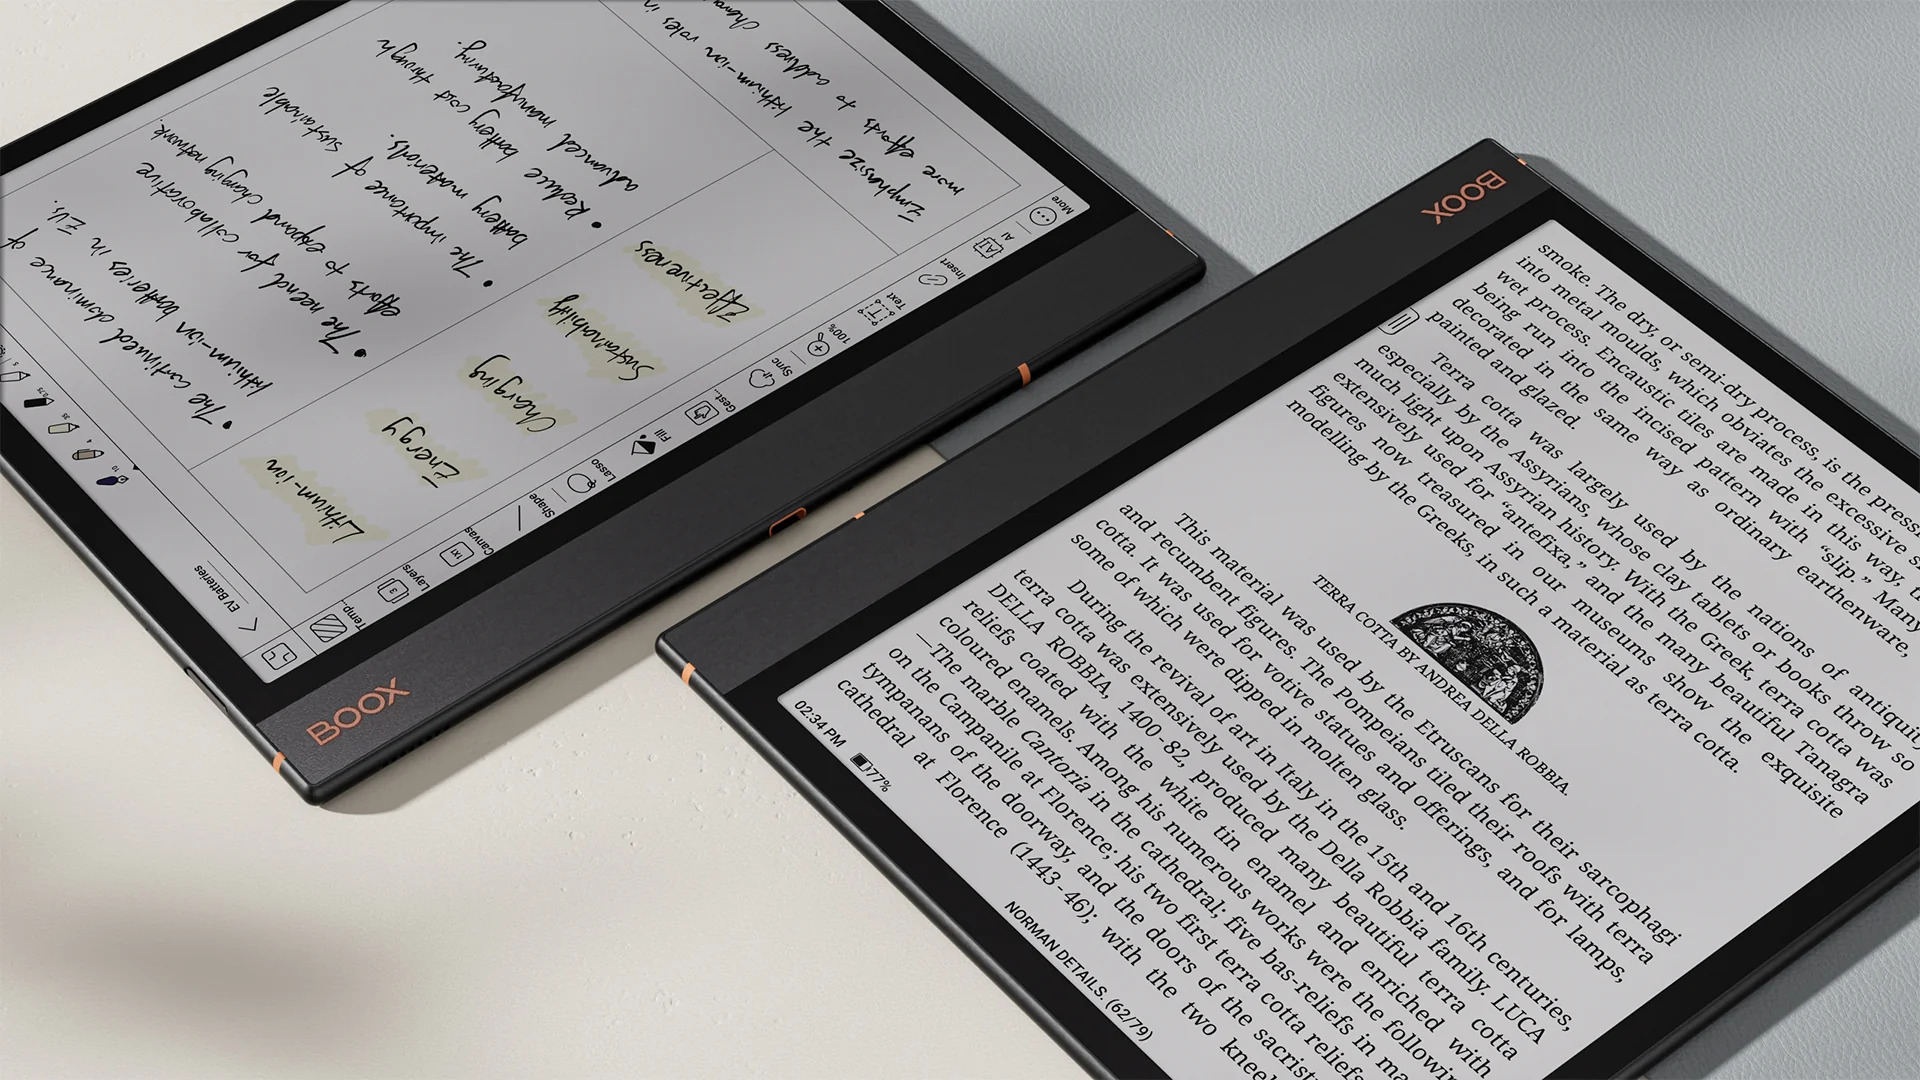 BOOX
EV Batteries
Temp...
Layers
Canvas
Shape
Lasso
Fill
Gest...
Sync
100%
Text
Insert
AI
More
Lithium-ion
Energy
Charging
Sustainability
Effectiveness
• The continued dominance of
lithium-ion batteries in EVs.
• The need for collaborative
efforts to expand charging network.
• The importance of sustainable
battery materials.
• Reduce battery cost through
advanced manufacturing.
Emphasize the lithium-ion roles in
more efforts to address
BOOX
smoke. The dry, or semi-dry process, is the press
into metal moulds, which obviates the excessive
wet process. Encaustic tiles are made in this way,
being run into the incised pattern with “slip.” Many
decorated in the same way as ordinary earthenware,
painted and glazed.
Terra cotta was largely used by the nations of antiquity
especially by the Assyrians, whose clay tablets or books throw so
much light upon Assyrian history. With the Greek, terra cotta was
extensively used for “antefixa,” and the many beautiful Tanagra
figures now treasured in our museums show the exquisite
modelling by the Greeks, in such a material as terra cotta.
TERRA COTTA BY ANDREA DELLA ROBBIA.
This material was used by the Etruscans for their sarcophagi
and recumbent figures. The Pompeians tiled their roofs with terra
cotta. It was used for votive statues and offerings, and for lamps,
some of which were dipped in molten glass.
During the revival of art in Italy in the 15th and 16th centuries,
terra cotta was extensively used by the Della Robbia family. LUCA
DELLA ROBBIA, 1400-82, produced many beautiful terra cotta
reliefs coated with the white tin enamel and enriched with
coloured enamels. Among his numerous works were the followin
—The marble Cantoria in the cathedral; five bas-reliefs in ma
on the Campanile at Florence; his two first terra cotta reliefs
tympanans of the doorway, and the doors of the sacrist
cathedral at Florence (1443-46); with the two knee
02:34 PM
77%
NORMAN DETAILS. (62/79)